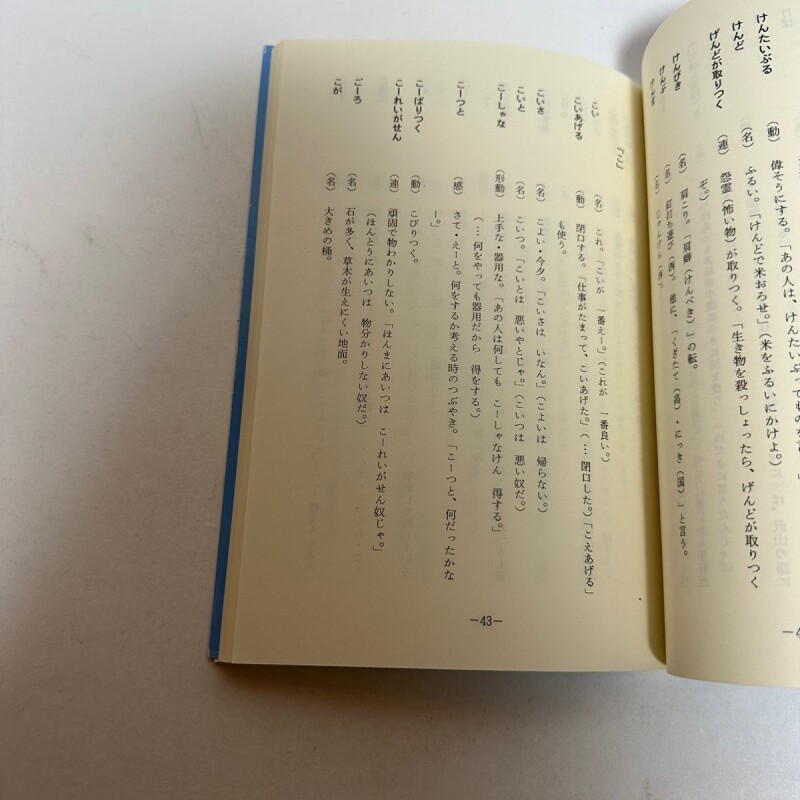 けんたいぶる (動) 偉そうにする。「あの人は、けんたいぶって
けんど (名) ふるい。「けんどで米おろせ。」(米をふるいにかけよ。)
げんどが取りつく (連) 怨霊(怖い物)が取りつく。「生き物を殺っしょったら、げんどが取りつく
ぞ。」
けんびき (名) 肩こり。「肩癖(けんべき)」の転。
けんぶ (名) 釘打ち遊び(西)。他に、「くぎたて(高)・にっき(国)」と言う。
(名) じゃんけん(西)。
『こ』
こい (名) これ。「こいが 一番えー。」(これが 一番良い。)
こいあげる (動) 閉口する。「仕事がたまって、こいあげた。」(…閉口した。)「こえあげる」
も使う。
こいさ (名) こよい・今夕。「こいさは いなん。」(こよいは 帰らない。)
こいと (名) こいつ。「こいとは 悪いやとじゃ。」(こいつは 悪い奴だ。)
こーしゃな (形動) 上手な・器用な。「あの人は何しても こーしゃなけん 得する。」
(…何をやっても器用だから 得をする。)
こーつと (感) さて・えーと。何をするか考える時のつぶやき。「こーつと、何だったかな
ー。」
こーばりつく (動) こびりつく。
こーれいがせん (連) 頑固で物わかりしない。「ほんまにあいつは こーれいがせん奴じゃ。」
(ほんとうにあいつは 物分かりしない奴だ。)
ごーろ (名) 石が多く、草木が生えにくい地面。
こが (名) 大きめの桶。
—43—